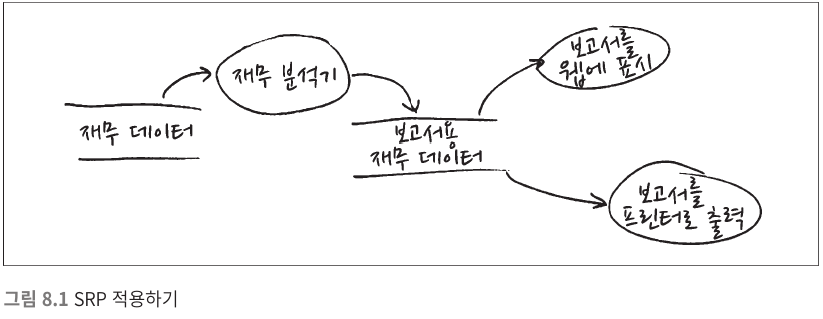 재무 데이터
재무 분석기
보고서용
재무 데이터
보고서를
웹에 표시
보고서를
프린터로 출력
그림 8.1 SRP 적용하기